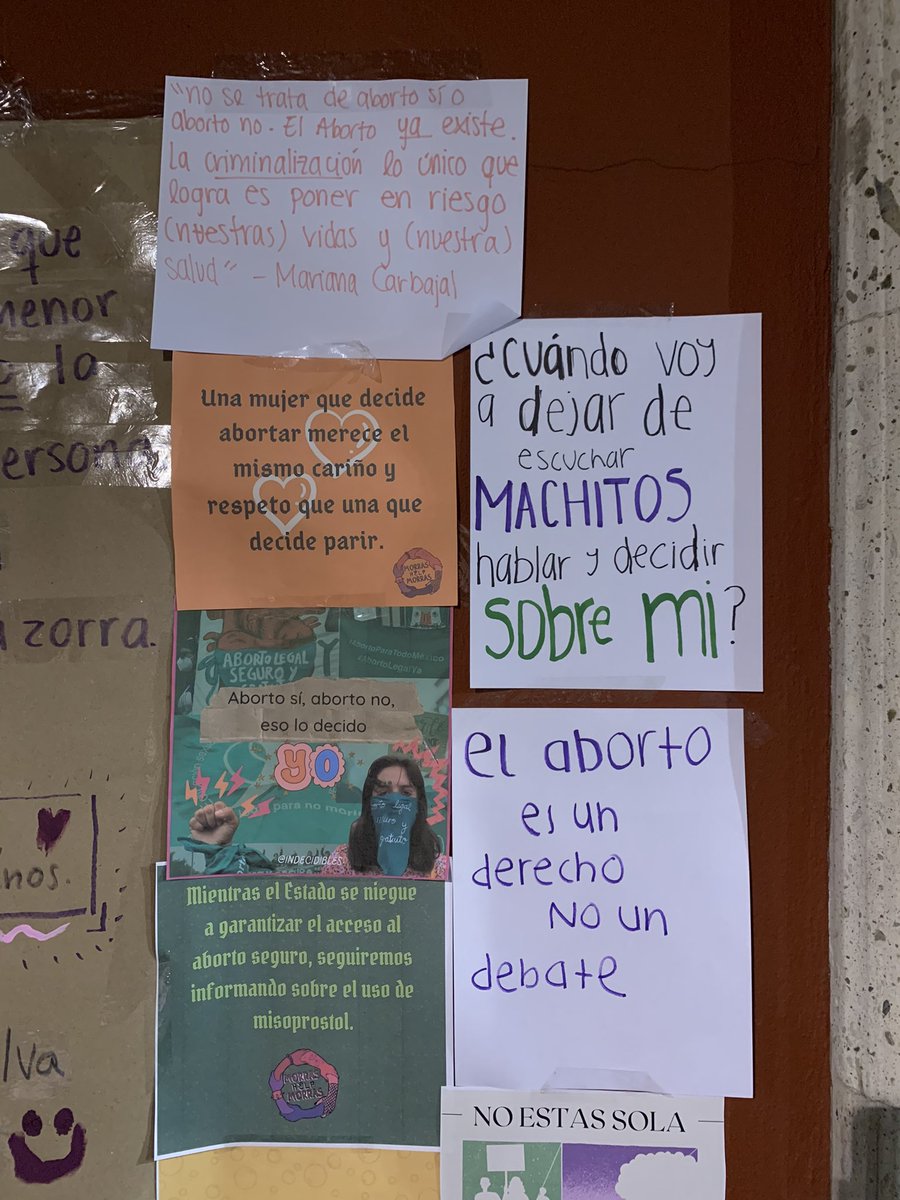 "no se trata de aborto sí o
aborto no. El Aborto ya existe.
La criminalización lo único que
logra es poner en riesgo
(nuestras) vidas y (nuestra)
salud" - Mariana Carbajal
que
menor
la
persona
zorra.
nos.
Una mujer que decide
abortar merece el
mismo cariño y
respeto que una que
decide parir.
MORRAS
HELP
MORRAS
¿Cuándo voy
a dejar de
escuchar
MACHITOS
hablar y decidir
sobre mi?
ABORTO LEGAL
SEGURO Y
#AbortoParaTodoMéxico
#AbortoLegalYa
Aborto sí, aborto no,
eso lo decido
yo
para no morir
legal
y
gratuito
@INDECIDIBLES
el aborto
es un
derecho
NO un
debate
Mientras el Estado se niegue
a garantizar el acceso al
aborto seguro, seguiremos
informando sobre el uso de
misoprostol.
MORRAS
HELP
MORRAS
NO ESTAS SOLA